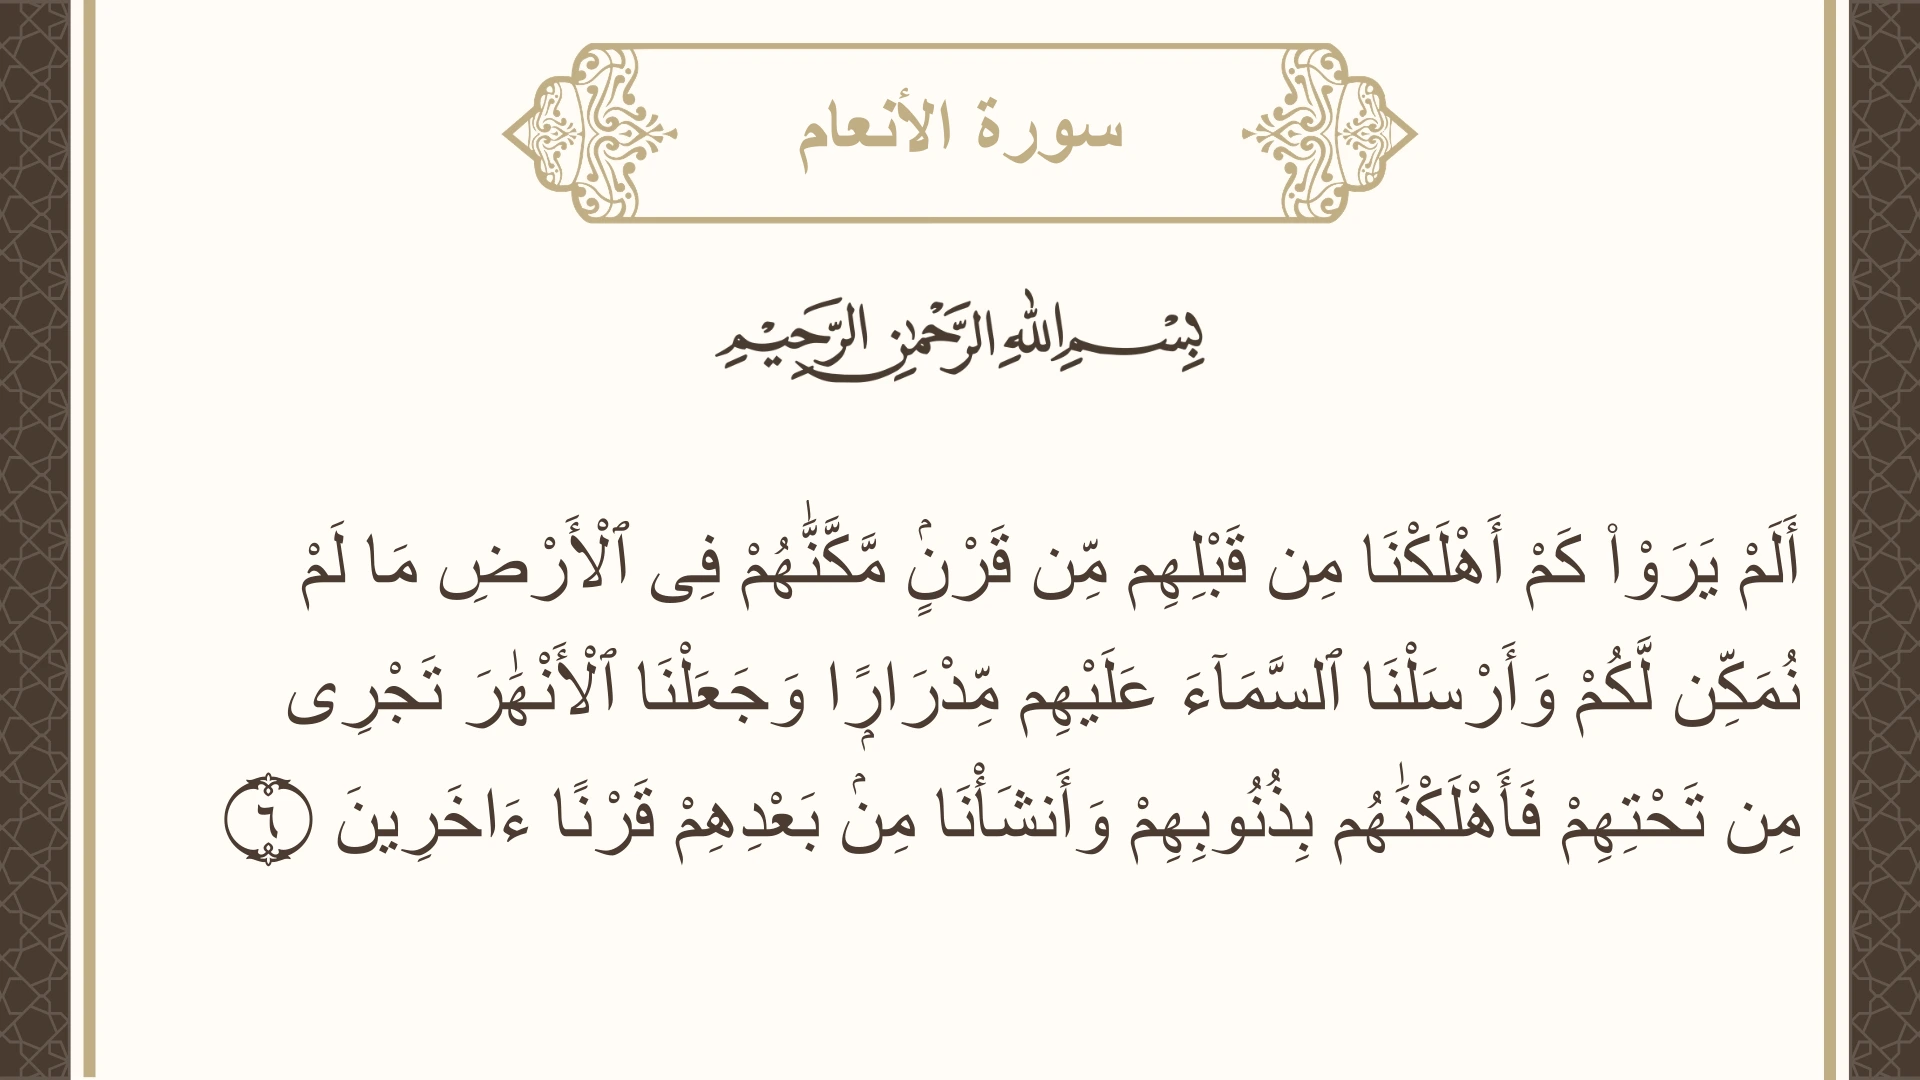 سورة الأنعام
بِسْمِ اللهِ الرَّحْمٰنِ الرَّحِيْمِ
أَلَمْ يَرَوْا۟ كَمْ أَهْلَكْنَا مِن قَبْلِهِم مِّن قَرْنٍۢ مَّكَّنَّـٰهُمْ فِى ٱلْأَرْضِ مَا لَمْ
نُمَكِّن لَّكُمْ وَأَرْسَلْنَا ٱلسَّمَآءَ عَلَيْهِم مِّدْرَارٍۭاً وَجَعَلْنَا ٱلْأَنْهَـٰرَ تَجْرِى
مِن تَحْتِهِمْ فَأَهْلَكْنَـٰهُم بِذُنُوبِهِمْ وَأَنشَأْنَا مِنۢ بَعْدِهِمْ قَرْنًا ءَاخَرِينَ ٦